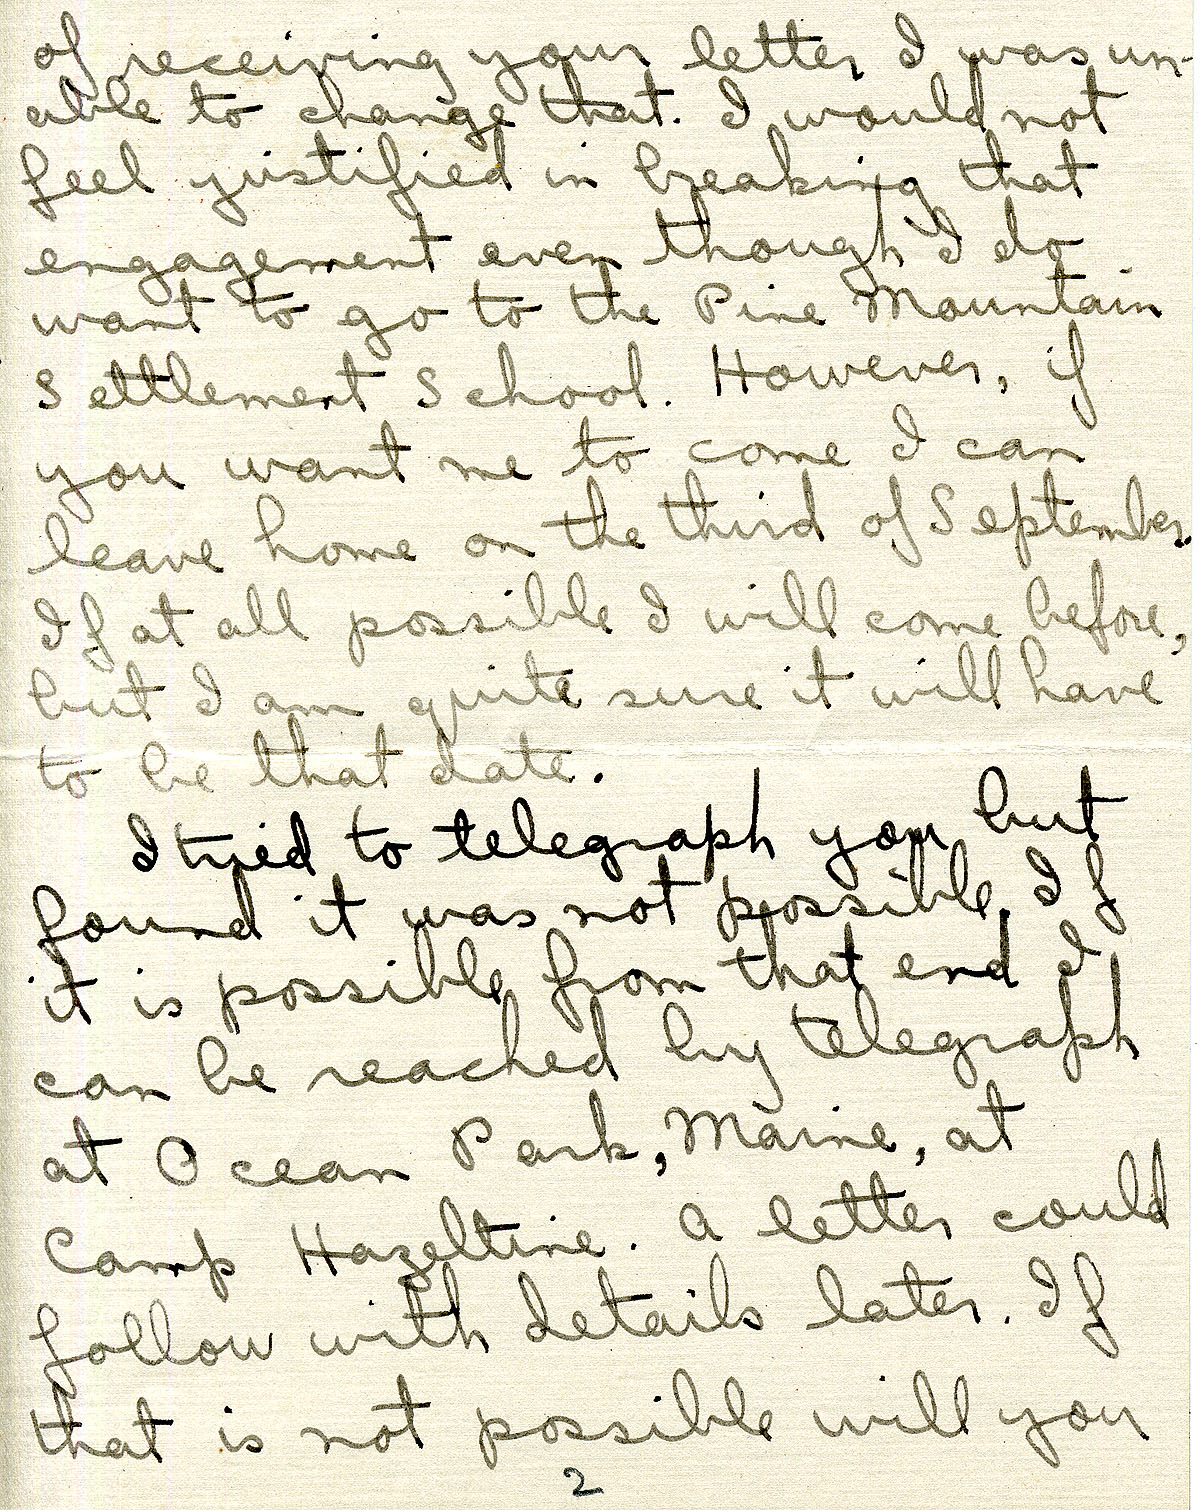 of receiving your letter I was un-
able to change that. I would not
feel justified in breaking that
engagement even though I do
want to go to the Pine Mountain
Settlement School. However, if
you want me to come I can
leave home on the third of September.
If at all possible I will come before,
but I am quite sure it will have
to be that date.
I tried to telegraph you but
found it was not possible. If
it is possible from that end I
can be reached by telegraph
at Ocean Park, Maine, at
Camp Hazeltine. A letter could
follow with details later. If
that is not possible will you
2